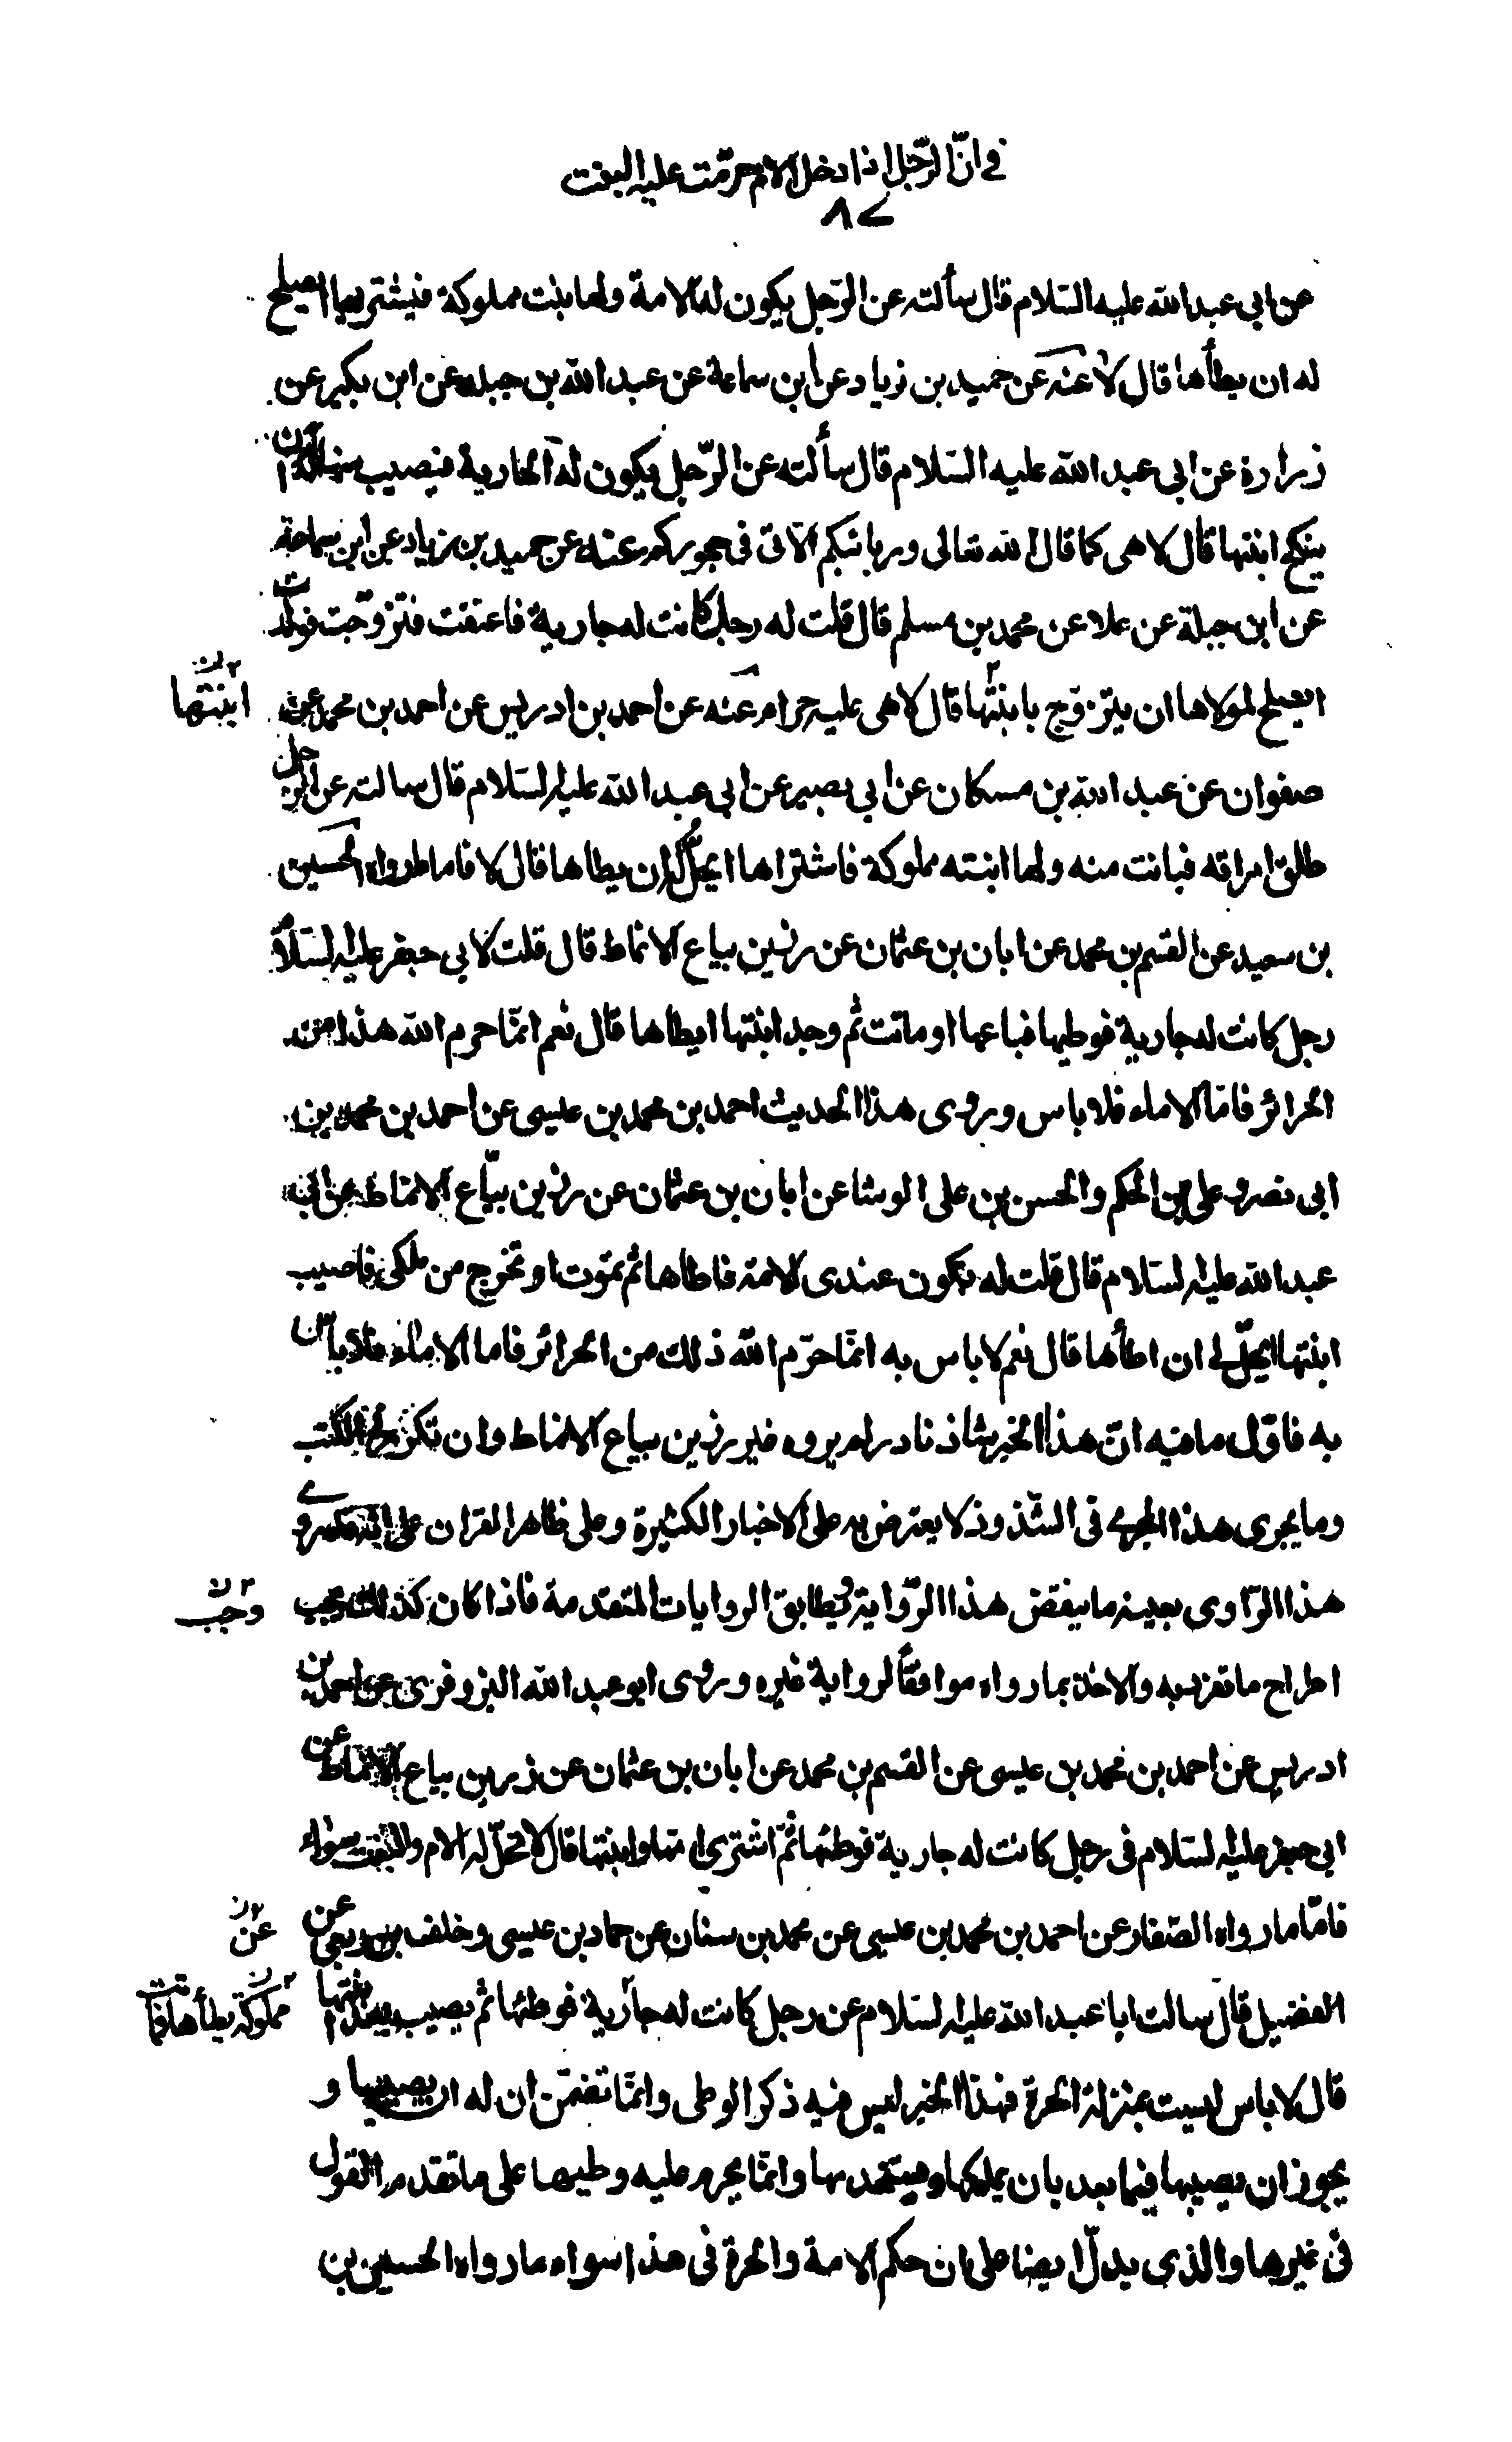 في انّ الرّجل اذا دخل الام حرّمت عليه البنت
٨٧
عن ابى عبد الله عليه السّلام قال سألته عن الرّجل يكون له الامة ولها بنت مملوكة فيشتريها ايصلح
له ان يطأها قال لا عنه عن حميد بن زياد عن ابن سماعة عن عبد الله بن جبله عن ابن بكير عن
زرارة عن ابى عبد الله عليه السّلام قال سألته عن الرّجل يكون له الجارية فيصيب منها اله ان
ينكح ابنتها قال لا هى كما قال الله تعالى وربائبكم الّاتى فى حجوركم عنه عن حميد بن زياد عن ابن سماعة
عن ابن جبلة عن علا عن محمد بن مسلم قال قلت له رجل كانت له جارية فاعتقت فتزوّجت فولدت
ايصلح لمولاها ان يتزوّج بابنتها قال لا هى عليه حرام عنه عن احمد بن ادريس عن احمد بن محمد عن
ابنتها
صفوان عن عبد الله بن مسكان عن ابى بصير عن ابى عبد الله عليه السّلام قال سالته عن الرجل
طلق امراته فبانت منه ولها ابنته مملوكة فاشتراها ايحلّ له ان يطاها قال لا فاما ما رواه الحسين
بن سعيد عن القسم بن محمد عن ابان بن عثمان عن رزين بياع الانماط قال قلت لابى جعفر عليه السّلام
رجل كانت له جارية فوطيها فباعها او ماتت ثم وجد ابنتها ايطاها قال نعم انمّا حرم الله هذا من
الحرائر فامّا الاماء فلا باس وروى هذا الحديث احمد بن محمد بن عيسى عن احمد بن محمد بن
ابى نصر وعلى بن الحكم والحسن بن على الوشا عن ابان بن عثمان عن رزين بيّاع الانماط عن ابى
عبد الله عليه السّلام قال قلت له تكون عندى الامة فاطاها ثم تموت او تخرج من ملكى فاصيب
ابنتها ايحلّ لى ان اطأها قال نعم لا باس به انمّا حرّم الله ذلك من الحرائر فاما الاماء فلا باس
به فاوّل ما فيه انّ هذا الخبر شاذ نادر لم يروه غير رزين بياع الانماط وان تكرر فى الكتب
وما يجرى هذا المجرى فى الشّذوذ لا يعترض به على الاخبار الكثيرة وعلى ظاهر القران على انه قد روى
هذا الرّاوى بعينه ما ينقض هذا الرّواية ويطابق الروايات المتقدمة فاذا كان كذلك يجب
وجب
اطراح ما تفرد به والاخذ بما رواه موافقاً لرواية غيره وروى ابو عبد الله البزوفرى عن احمد بن
ادريس عن احمد بن محمد بن عيسى عن القسم بن محمد عن ابان بن عثمان عن زرين بياع الانماط عن
ابى جعفر عليه السّلام فى رجل كانت له جارية فوطئها ثمّ اشترى امّها وابنتها قال لا تحلّ له الام والبنت سواء
فامّا ما رواه الصّفار عن احمد بن محمد بن عيسى عن محمد بن سنان عن حماد بن عيسى وخلف بن ربعى عن
عن
الفضيل قال سالت ابا عبد الله عليه السّلام عن رجل كانت له جارية فوطئها ثم يصيب بعد ابنتها
مملوكة يطأها فماتت
قال لا باس ليست بمنزلة الحرة فهذا الخبر ليس فيه ذكر الوطى وانمّا تضمّن ان له ان يصيبها و
يجوز ان يصيبها فيما بعد بان يملكها ويستخدمها وانمّا يحرم عليه وطيها على ما تقدم القول
فى غيرها والذى يدلّ ايضا على ان حكم الامة والحرة فى هذا سواء ما رواه الحسين بن